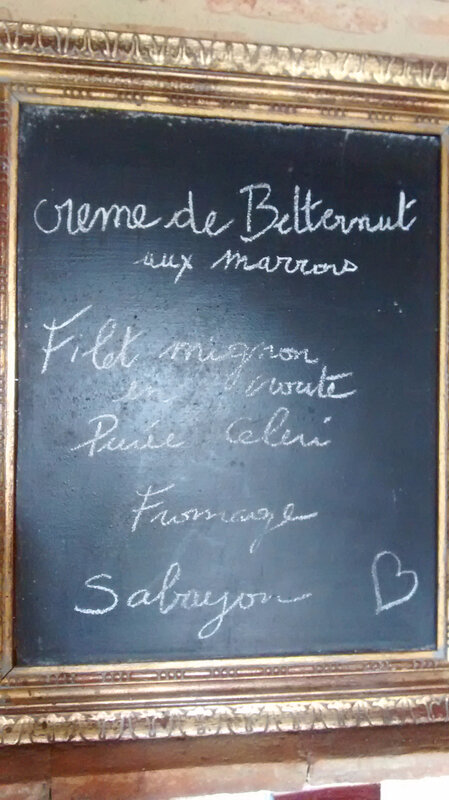 creme de Belternut
aux marrons
Filet mignon
en croute
Purée Celeri
Fromage
Sabayon